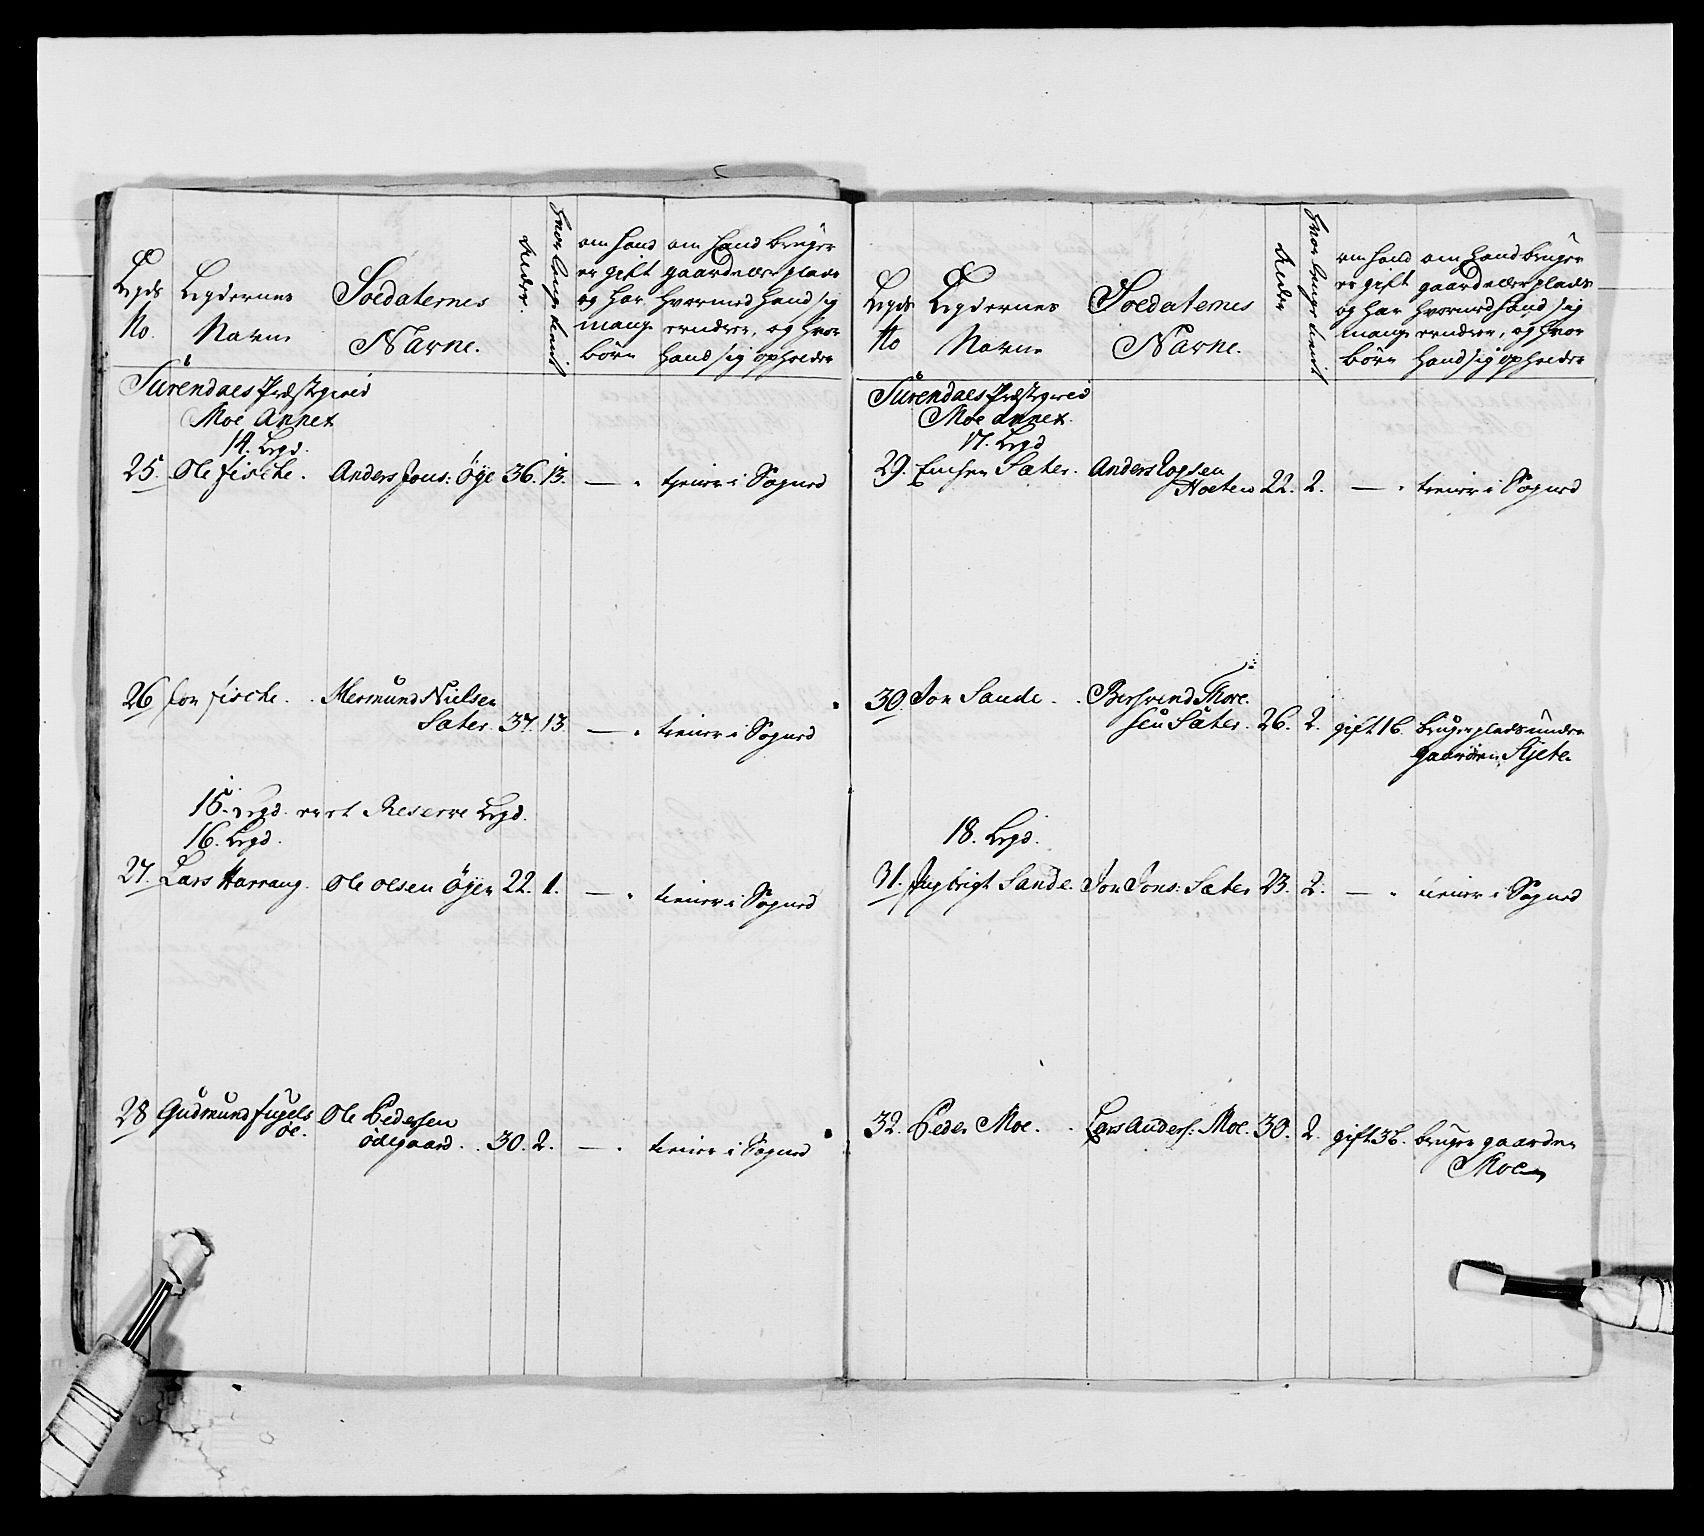 Legds
No.
Legdernes
Navne
Soldaternes
Navne.
Alder.
hvor lenge tient
om hand
er gift
og har
mange
börn
om hand bruger
gaard eller plads
hvormed hand sig
ernærer, og hvor
hand sig opholder
Sürendals Præstegield
Moe Annex
14. Legd.
25. Ole fische. Anders Jons: Öye 36. 13. — . tjener i Sogned
26 Jon fische. . Mermund Nielsen
Sæter. 37. 13. — . tiener i Sogned
15. Legd. vert Reserve Legd.
16. Legd.
27. Lars Harrang. Ole Olsen Öyen 22. 1. — . tiener i Sogned
28 Gudmund fugels Ole Pedersen
öe. ödegaard. . 30. 2. — . tiener i Sogned
Legds
No
Legdernes
Navne
Soldaternes
Navne.
Alder
hvor lenge tient
om hand
er gift
og har
mange
börn
om hand bruger
gaard eller plads
hvormed hand sig
ernærer, og hvor
hand sig opholder
Sürendals Præstegield
Moe annex.
17. Legd
29. Sæter. Anders
Holten 22. 2. — . tiener i Sogned
30 Jon Sande. . Bersvend Thore
sen Sæter. 26. 2. gift 1 b. bruger plads under
gaarden
18. Legd.
31. Ingbrigt Sande. Jon Jons: Sæter 23. 2. — . tiener i Sogned
32. Peder Moe. . Lars Anders: Moe. 30. 2. gift 3 b. bruger gaarden
Moe